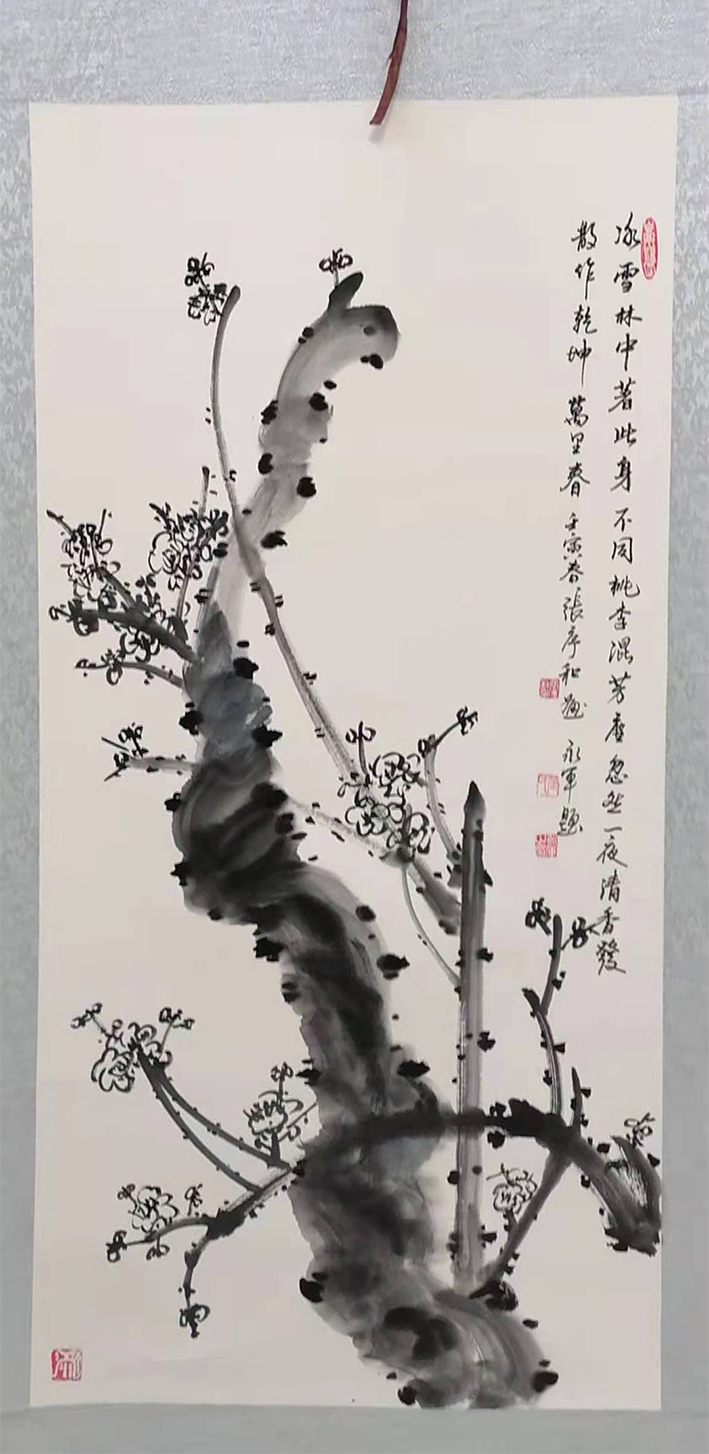 冰雪林中著此身不同桃李混芳塵忽然一夜清香發
散作乾坤萬里春壬寅春張序和畫永軍題